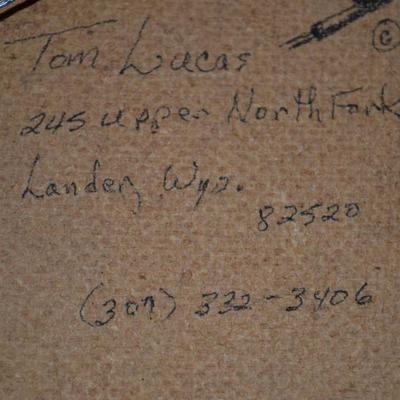 ©
Tom Lucas
245 Upper North Fork
Lander, Wyo.
82520
(307) 332-3406